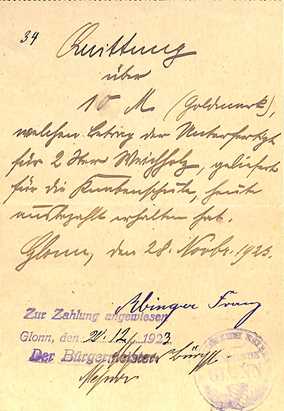 34
Quittung
über
10 M (Goldmark),
welchen Betrag der Unterfertigte
für 2 Ster Weichholz, geliefert
für die Knabenschule, heute
ausbezahlt erhalten hat.
Glonn, den 28. Novbr. 1923.
Abinger Franz
Zur Zahlung angewiesen
Glonn, den 20.12.1923
Der Bürgermeister